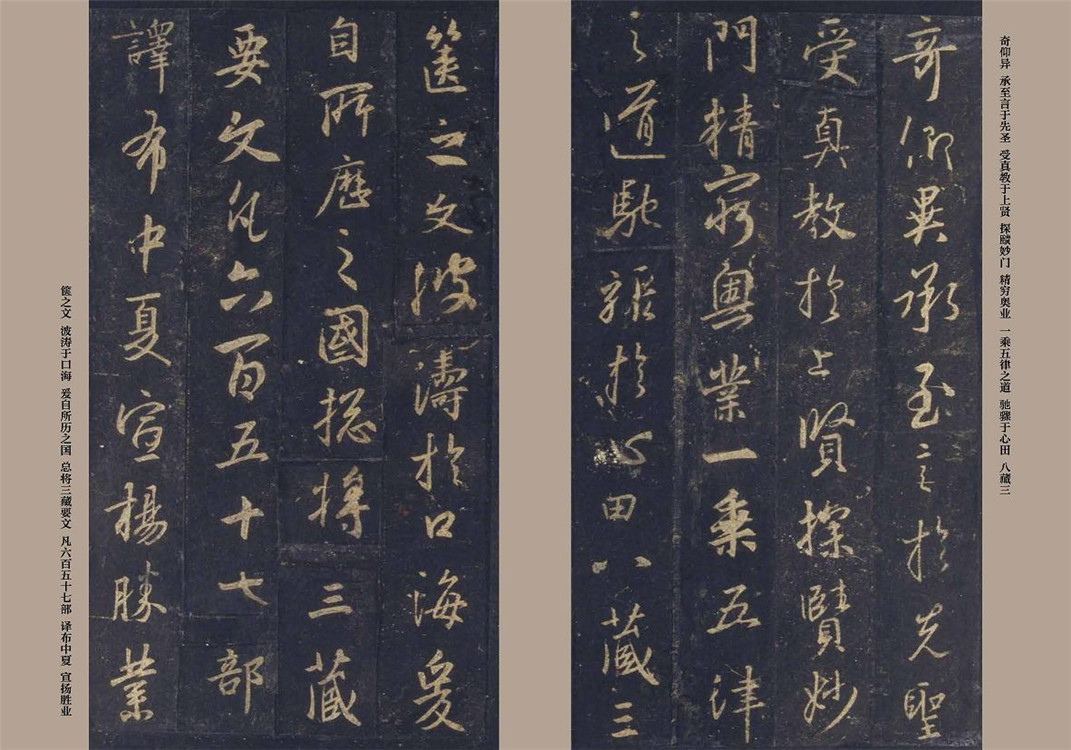 奇仰异 承至言于先圣 受真教于上贤 探赜妙门 精穷奥业 一乘五律之道 驰骤于心田 八藏三
奇仰異承至言於先聖
受真教於上賢探賾妙
門精窮奧業一乘五律
之道馳驟於心田八藏三
篋之文波濤於口海爰
自所歷之國揔將三藏
要文凡六百五十七部
譯布中夏宣揚勝業
箧之文 波涛于口海 爰自所历之国 总将三藏要文 凡六百五十七部 译布中夏 宣扬胜业